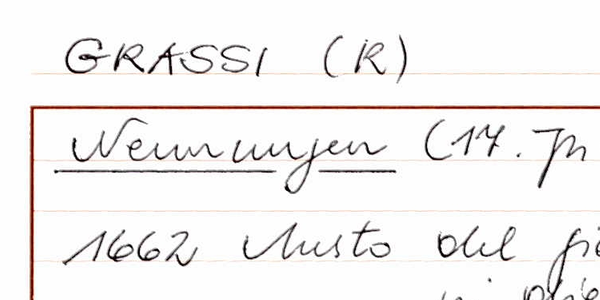 GRASSI (R)
Nennungen (17. Jh
1662 Austo del